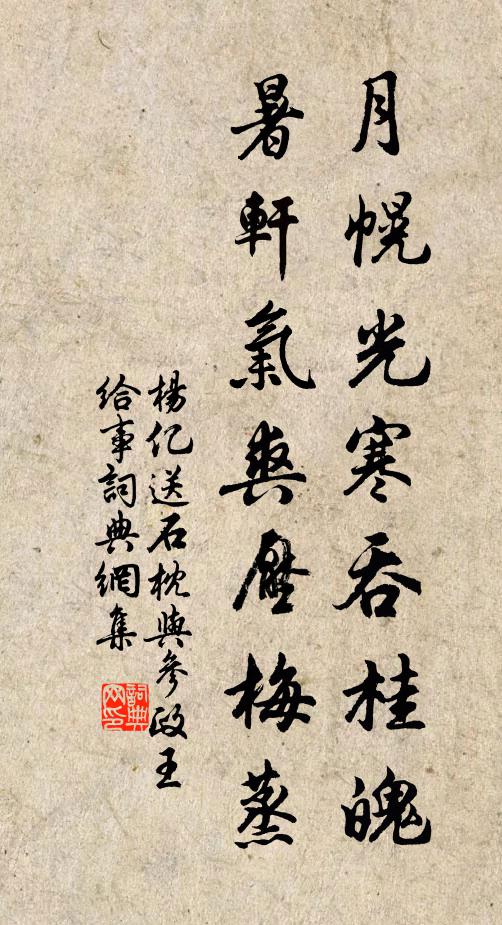 月幌光寒吞桂魄
暑軒氣爽壓梅蒸
楊億送石枕與參政王
給事詞典網集
詞典网印